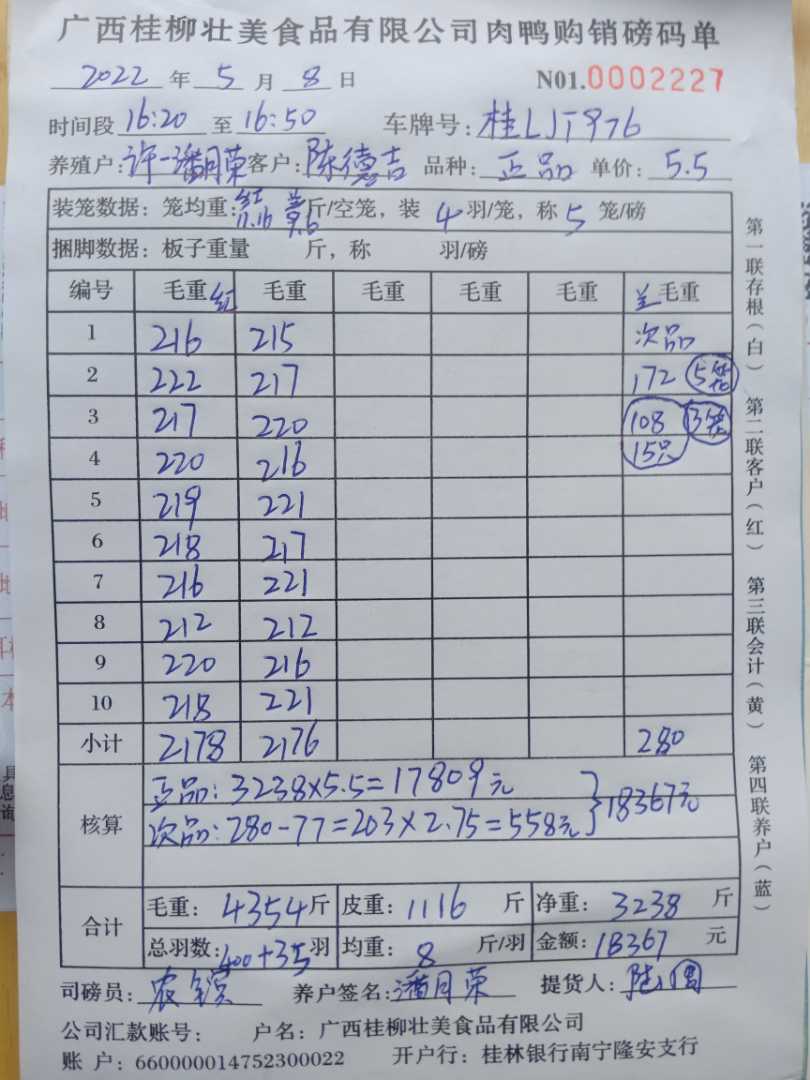 广西桂柳壮美食品有限公司肉鸭购销磅码单
2022 年 5 月 8 日 N01.0002227
时间段 16:20 至 16:50 车牌号: 桂LJT976
养殖户: 许一潘月荣 客户: 陈德吉 品种: 正品 单价: 5.5
装笼数据: 笼均重: 红 11.16 黄 9.6 斤/空笼, 装 4 羽/笼, 称 5 笼/磅
捆脚数据: 板子重量 斤, 称 羽/磅
编号 毛重 红 毛重 毛重 毛重 毛重 毛重
1 216 215 次品
2 222 217 172 5笼
3 217 220 108 3笼
4 220 216 15只
5 219 221
6 218 217
7 216 221
8 212 212
9 220 216
10 218 221
小计 2178 2176 280
核算 正品: 3238×5.5=17809元
次品: 280-77=203×2.75=558元 } 18367元
合计 毛重: 4354 斤 皮重: 1116 斤 净重: 3238 斤
总羽数: 400+35 羽 均重: 8 斤/羽 金额: 18367 元
司磅员: 养户签名: 潘月荣 提货人:
公司汇款账号: 户名: 广西桂柳壮美食品有限公司
账 户: 660000014752300022 开户行: 桂林银行南宁隆安支行
第一联存根(白) 第二联客户(红) 第三联会计(黄) 第四联养户(蓝)